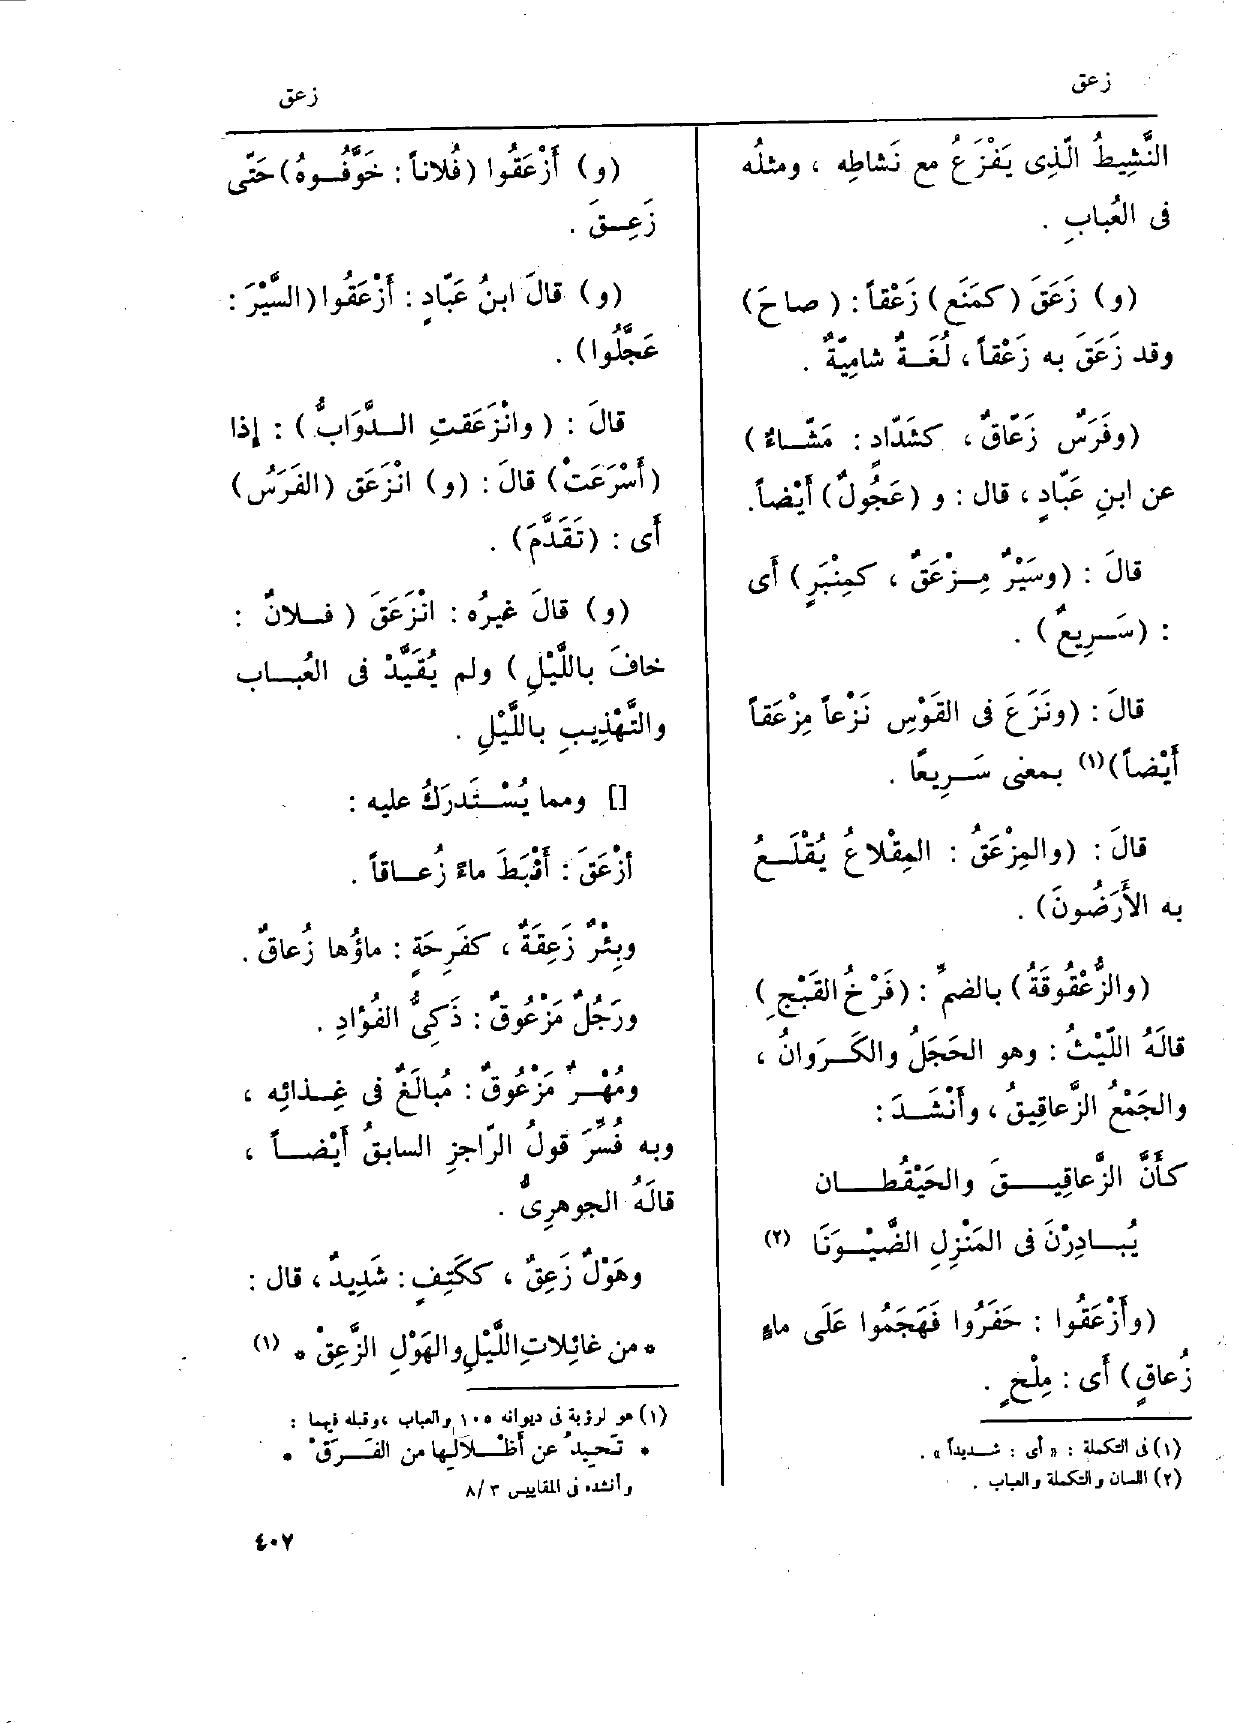 زعق
زعق
النَّشِيطُ الَّذِى يَفْزَعُ مع نَشاطِه ، ومثلُه
فى العُبابِ .
(و) زَعَقَ (كمَنَع) زَعْقاً : (صاحَ)
وقد زَعَقَ به زَعْقاً ، لُغَةٌ شامِيّةٌ .
(وفَرَسٌ زَعّاقٌ ، كشَدّادٍ : مَشّاءٌ)
عن ابنِ عَبّادٍ ، قال : و (عَجُولٌ) أَيْضاً.
قالَ : (وسَيْرٌ مِزْعَقٌ ، كمِنْبَرٍ) أَى
: (سَرِيعٌ) .
قالَ : (ونَزَعَ فى القَوْسِ نَزْعاً مِزْعَقاً
أَيْضاً)(١) بمعنى سَرِيعًا .
قالَ : (والمِزْعَقُ : المِقْلاعُ يُقْلَعُ
به الأَرَضُونَ) .
(والزُّعْقُوقَةُ) بالضمِّ : (فَرْخُ القَبْجِ)
قالَهُ اللَّيْثُ : وهو الحَجَلُ والكَرَوانُ ،
والجَمْعُ الزَّعاقِيقُ ، وأَنْشَدَ :
كأَنَّ الزَّعاقِيقَ والحَيْقُطان
يُبادِرْنَ فى المَنْزِلِ الضَّيْوَنَا (٢)
(وأَزْعَقُوا : حَفَرُوا فَهَجَمُوا عَلَى ماءٍ
زُعاقٍ) أَى : مِلْحٍ .
(١) فى التكملة : « أى : شديداً » .
(٢) اللسان والتكملة والعباب .
(و) أَزْعَقُوا (فُلاناً : خَوَّفُوهُ) حَتَّى
زَعِقَ .
(و) قالَ ابنُ عَبّادٍ : أَزْعَقُوا (السَّيْرَ :
عَجَّلُوا) .
قالَ : (وانْزَعَقتِ الدَّوَابُّ) : إذا
(أَسْرَعَتْ) قالَ : (و) انْزَعَق (الفَرَسُ)
أَى : (تَقَدَّمَ) .
(و) قالَ غيرُه : انْزَعَقَ (فلانٌ :
خافَ باللَّيْلِ) ولم يُقَيَّدْ فى العُباب
والتَّهْذِيبِ باللَّيْلِ .
[] ومما يُسْتَدرَكُ عليه :
أزْعَقَ : أَنْبَطَ ماءً زُعاقاً .
وبِئْرٌ زَعِقَةٌ ، كفَرِحَةٍ : ماؤُها زُعاقٌ .
ورَجُلٌ مَزْعُوقٌ : ذَكِىُّ الفُؤادِ .
ومُهْرٌ مَزْعُوقٌ : مُبالَغٌ فى غِذائِه ،
وبه فُسِّرَ قولُ الرّاجزِ السابقُ أَيْضاً ،
قالَهُ الجوهرِىُّ .
وهَوْلٌ زَعِقٌ ، ككَتِفٍ : شَدِيدٌ ، قال :
* من غائِلاتِ اللَّيْلِ والهَوْلِ الزَّعِقْ * (١)
(١) هو لرؤبة فى ديوانه ١٠٥ والعباب ، وقبله فيهما :
* تَحِيدُ عن أَظْلالِها من الفَرَقْ *
وأنشده فى المقاييس ٣/٨
٤٠٧